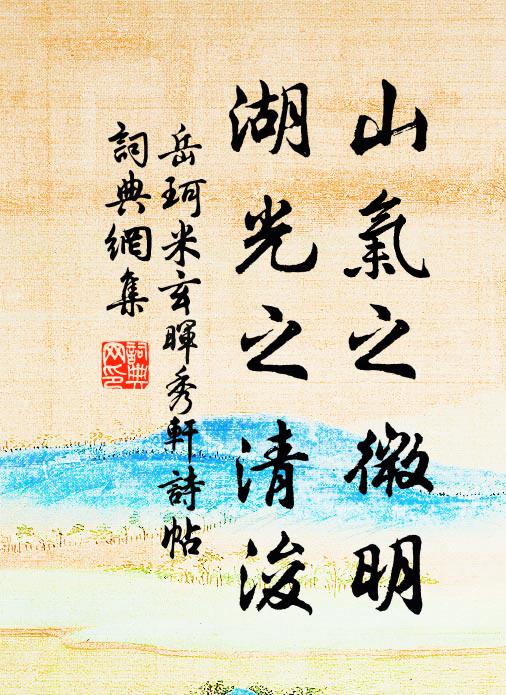 山氣之微明
湖光之清浚
岳珂米玄暉秀軒詩帖
詞典網集
詞典
网印